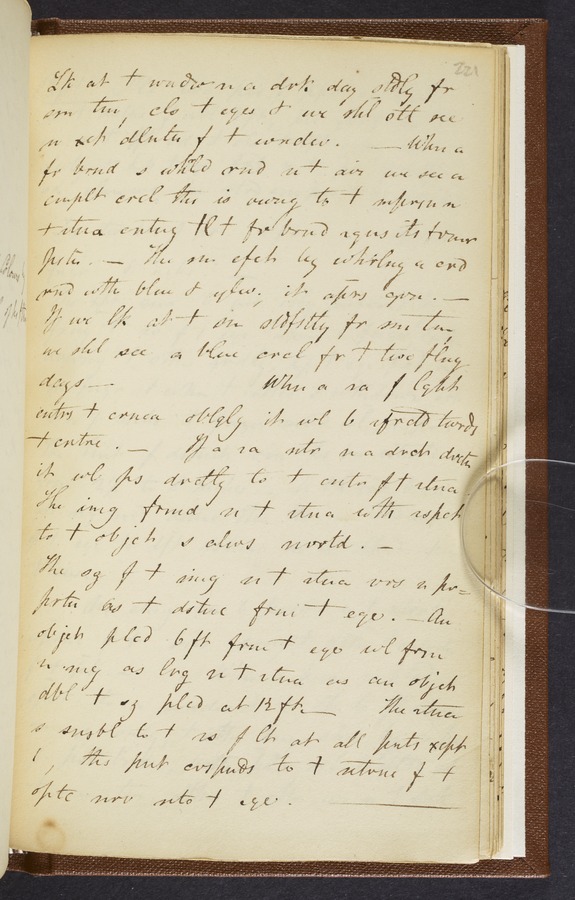 221
Lk at + wndw n a drk day stdly fr
sm tm, cls + eyes & we shl stl see
n xct dlntn f + wndw. — Whn a
fr brnd s whrld rnd n t air we see a
cmplt crcl ths is owng to + mprsn n
+ rtna
pstn. — The sm efct by whrlng a crd
rnd wth blue & ylw, it aprs grn. —
If we lk at + sn stdfstly fr sm tm
we shl see a blue crcl fr + twe flwng
days — Whn a ra f lght
entrs + crnea oblqly it wl b rfrctd twrds
+ cntre. — If a ra ntr n a drct drctn
it wl ps drctly to + cntr f t rtna
The img frmd n + rtna wth rspct
to + objct s alws nvrtd. —
The sz f + img n t rtna vrs n pr=
prtn as + dstnc frm + eye. — An
objct plcd 6 ft frm + eye wl frm
n mg as lrg n t rtna as an objct
dbl + sz plcd at 12 ft — The rtna
s snsbl to + rs f lt at all pnts xcpt
1, ths pnt crspnds to + ntrnc f +
optc nrv nto + eye.